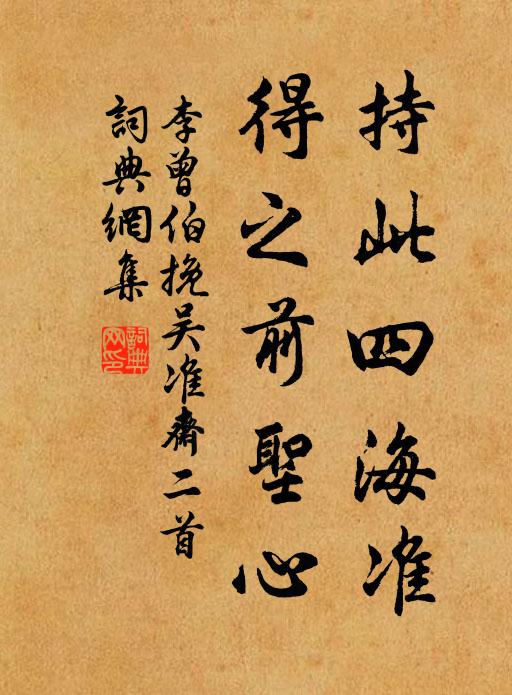 持此四海准
得之前聖心
李曾伯挽吴准齋二首
詞典網集
詞典網印